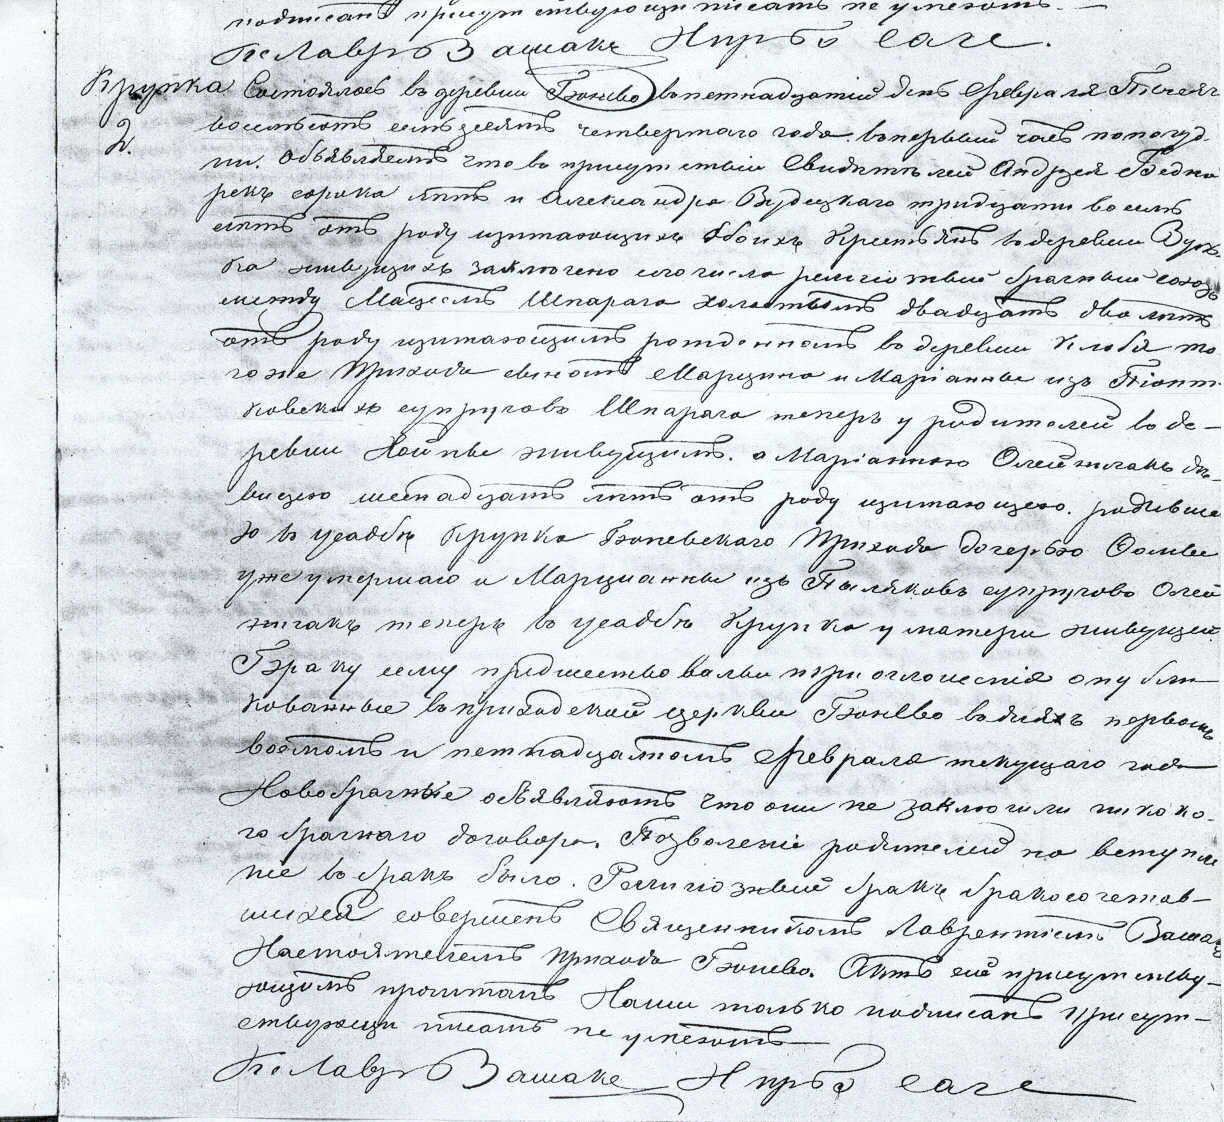 подписанъ присутствующіи писать не умеютъ.
Кс Лавръ Вашакъ Н пр Б саге.
Крупка
2.
Состоялось въ деревни Бонево въ петнадцатій день Февраля Тысеяч
восемьсотъ семьдзесятъ четвертаго года въ первый часъ пополуд
ни. Объявляемъ что въ присутствіи Свидѣтелей Андрея Бедна
рекъ сорока лѣтъ и Александра Вудецкаго тридцати восемъ
лѣтъ отъ роду щитающихъ обоихъ Крестьянъ въ деревни
ка живущихъ заключено сего числа религіжный брачный союзъ
между Мацеемъ Шпарага холостымъ двадцать два лѣтъ
отъ роду щитающимъ рожденномъ въ деревни Клобя то
гоже Прихода сыномъ Марцина и Маріанны изъ Піонт
ковскихъ супруговъ Шпарага теперъ у родителей въ де-
ревни живущимъ. а Маріанною Олейничакъ дѣ-
вицею шеснадцать лѣтъ отъ роду щитающею. родивше
ю въ усадбѣ Крупка Боневскаго Прихода дочерью Фомы
уже умершаго и Марцианны изъ Пыляковъ супруговъ Олей
ничакъ теперъ въ усадбѣ Крупка у матери живущей
Браку сему предшествовалы три оглошенія опубли
кованные въ приходской церкви Бонево въ дняхъ первомъ
восмомъ и петнадцатомъ Февраля текущаго года
Новобрачные объявляютъ что они не заключили никако-
го брачнаго договора. Позволеніе родителей на вступле
ніе въ бракъ было. Религіозный бракъ бракосочетав-
шихся совершенъ Священникомъ Лаврентіемъ Вашакъ
Настоятелемъ Прихода Бонево. Актъ сей присутству-
ющимъ прочитанъ Нами только подписанъ Присут-
ствующи писать не умеютъ
Кс Лавръ Вашакъ Н пр Б саге